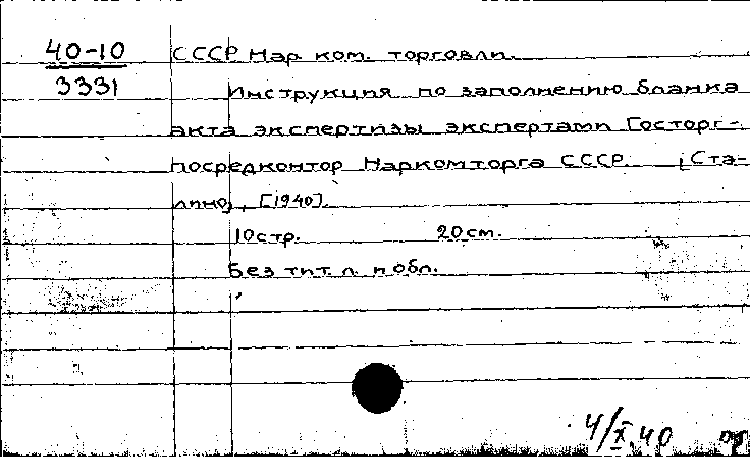 40-10
3331
СССР Нар. ком. торговли.
Инструкция по заполнению бланка
акта экспертизы экспертами Госторг-
посредконтор Наркомторга СССР. [Ста-
лино], [1940].
10 стр. 20 см.
Без тит. л. и обл.
4/X 40